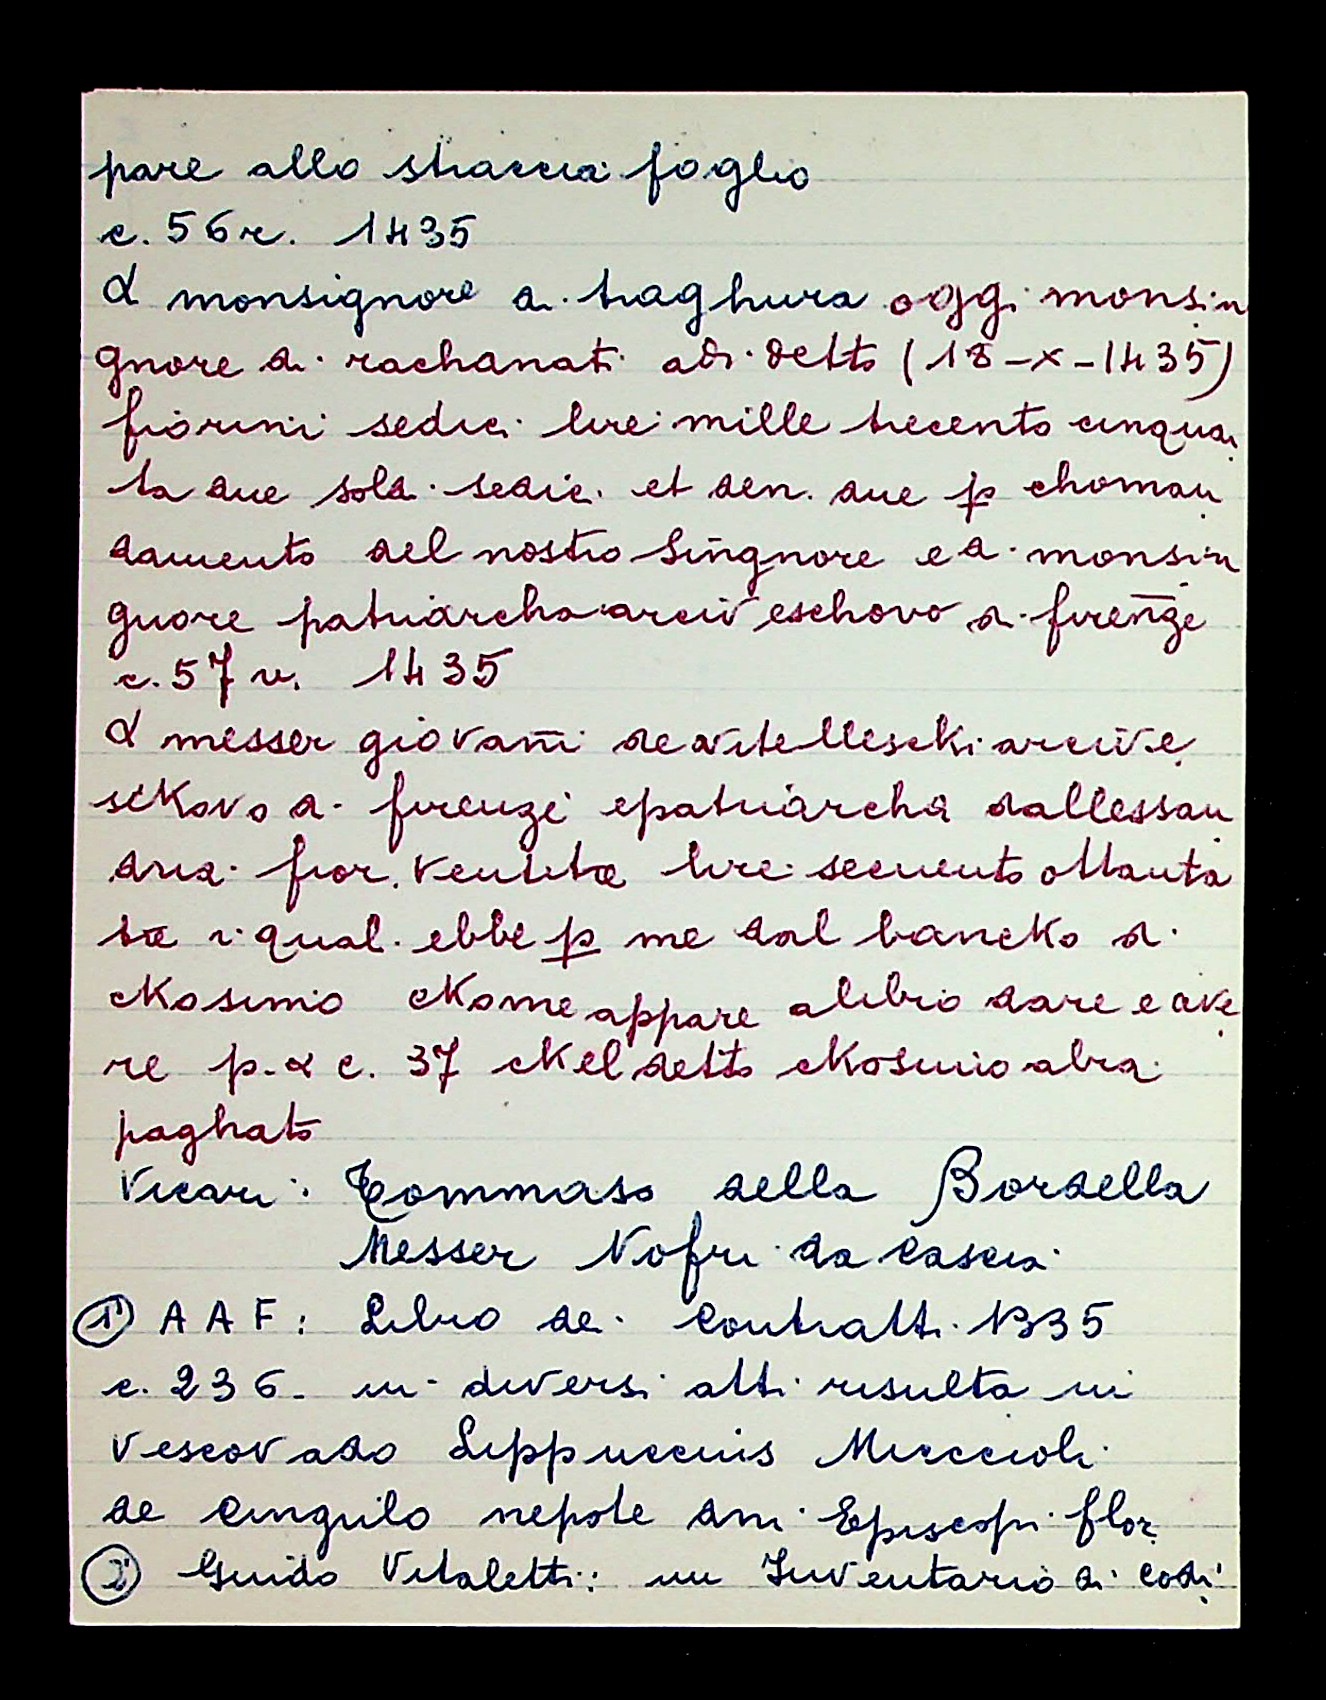 pare allo straccia foglio
c. 56 r. 1435
A monsignore di traghura oggi monsin
gnore di rachanati adi detto (18-X-1435)
fiorini sedici lire mille trecento cinquan
ta due soldi sedici et den. due p choman
damento del nostro Singnore e di monsin
gnore patriarcha arciveschovo di firenze
c. 57 v. 1435
A messer giovani de vitelleschi arcive
schovo di firenze epatriarcha dallessan
dria fior. ventitre lire secento ottanta
tre i quali ebbe p me dal bancho di
chosimo chome appare alibro dare e ave
re p. A c. 37 chel detto chosimo abia
paghato
Vicari: Tommaso della Bordella
Messer Nofri da Cascia
1) A A F: Libro de Contratti 1335
c. 236. in diversi atti risulta in
vescovado Lippuccius Muccioli
de Cingulo nepote dni Episcopi flor.
2) Guido Vitaletti: un Inventario di codi